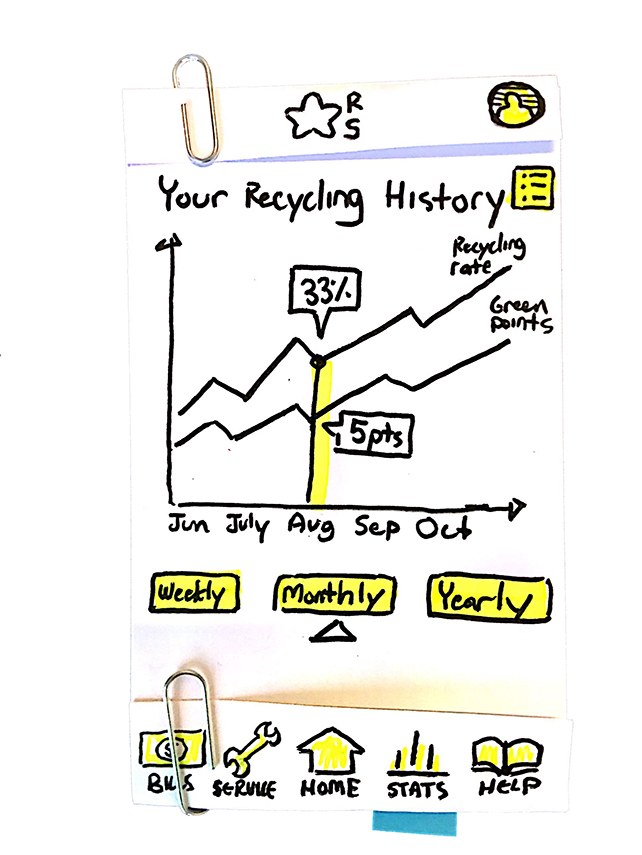 R
S
Your Recycling History
Recycling
rate
33%
Green
points
5pts
Jun July Aug Sep Oct
Weekly Monthly Yearly
$
BILLS SERVICE HOME STATS HELP